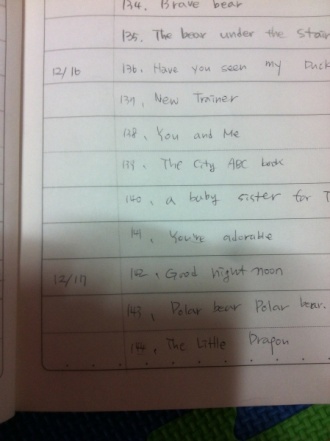 134. Brave bear
135. The bear under the stair
12/16 136. Have you seen my Duck
137, New Trainer
138, You and Me
139. The City ABC book
140, a baby sister for
141, You're adorable
12/17 142, Good night moon
143, Polar bear Polar bear.
144, The Little Dragon